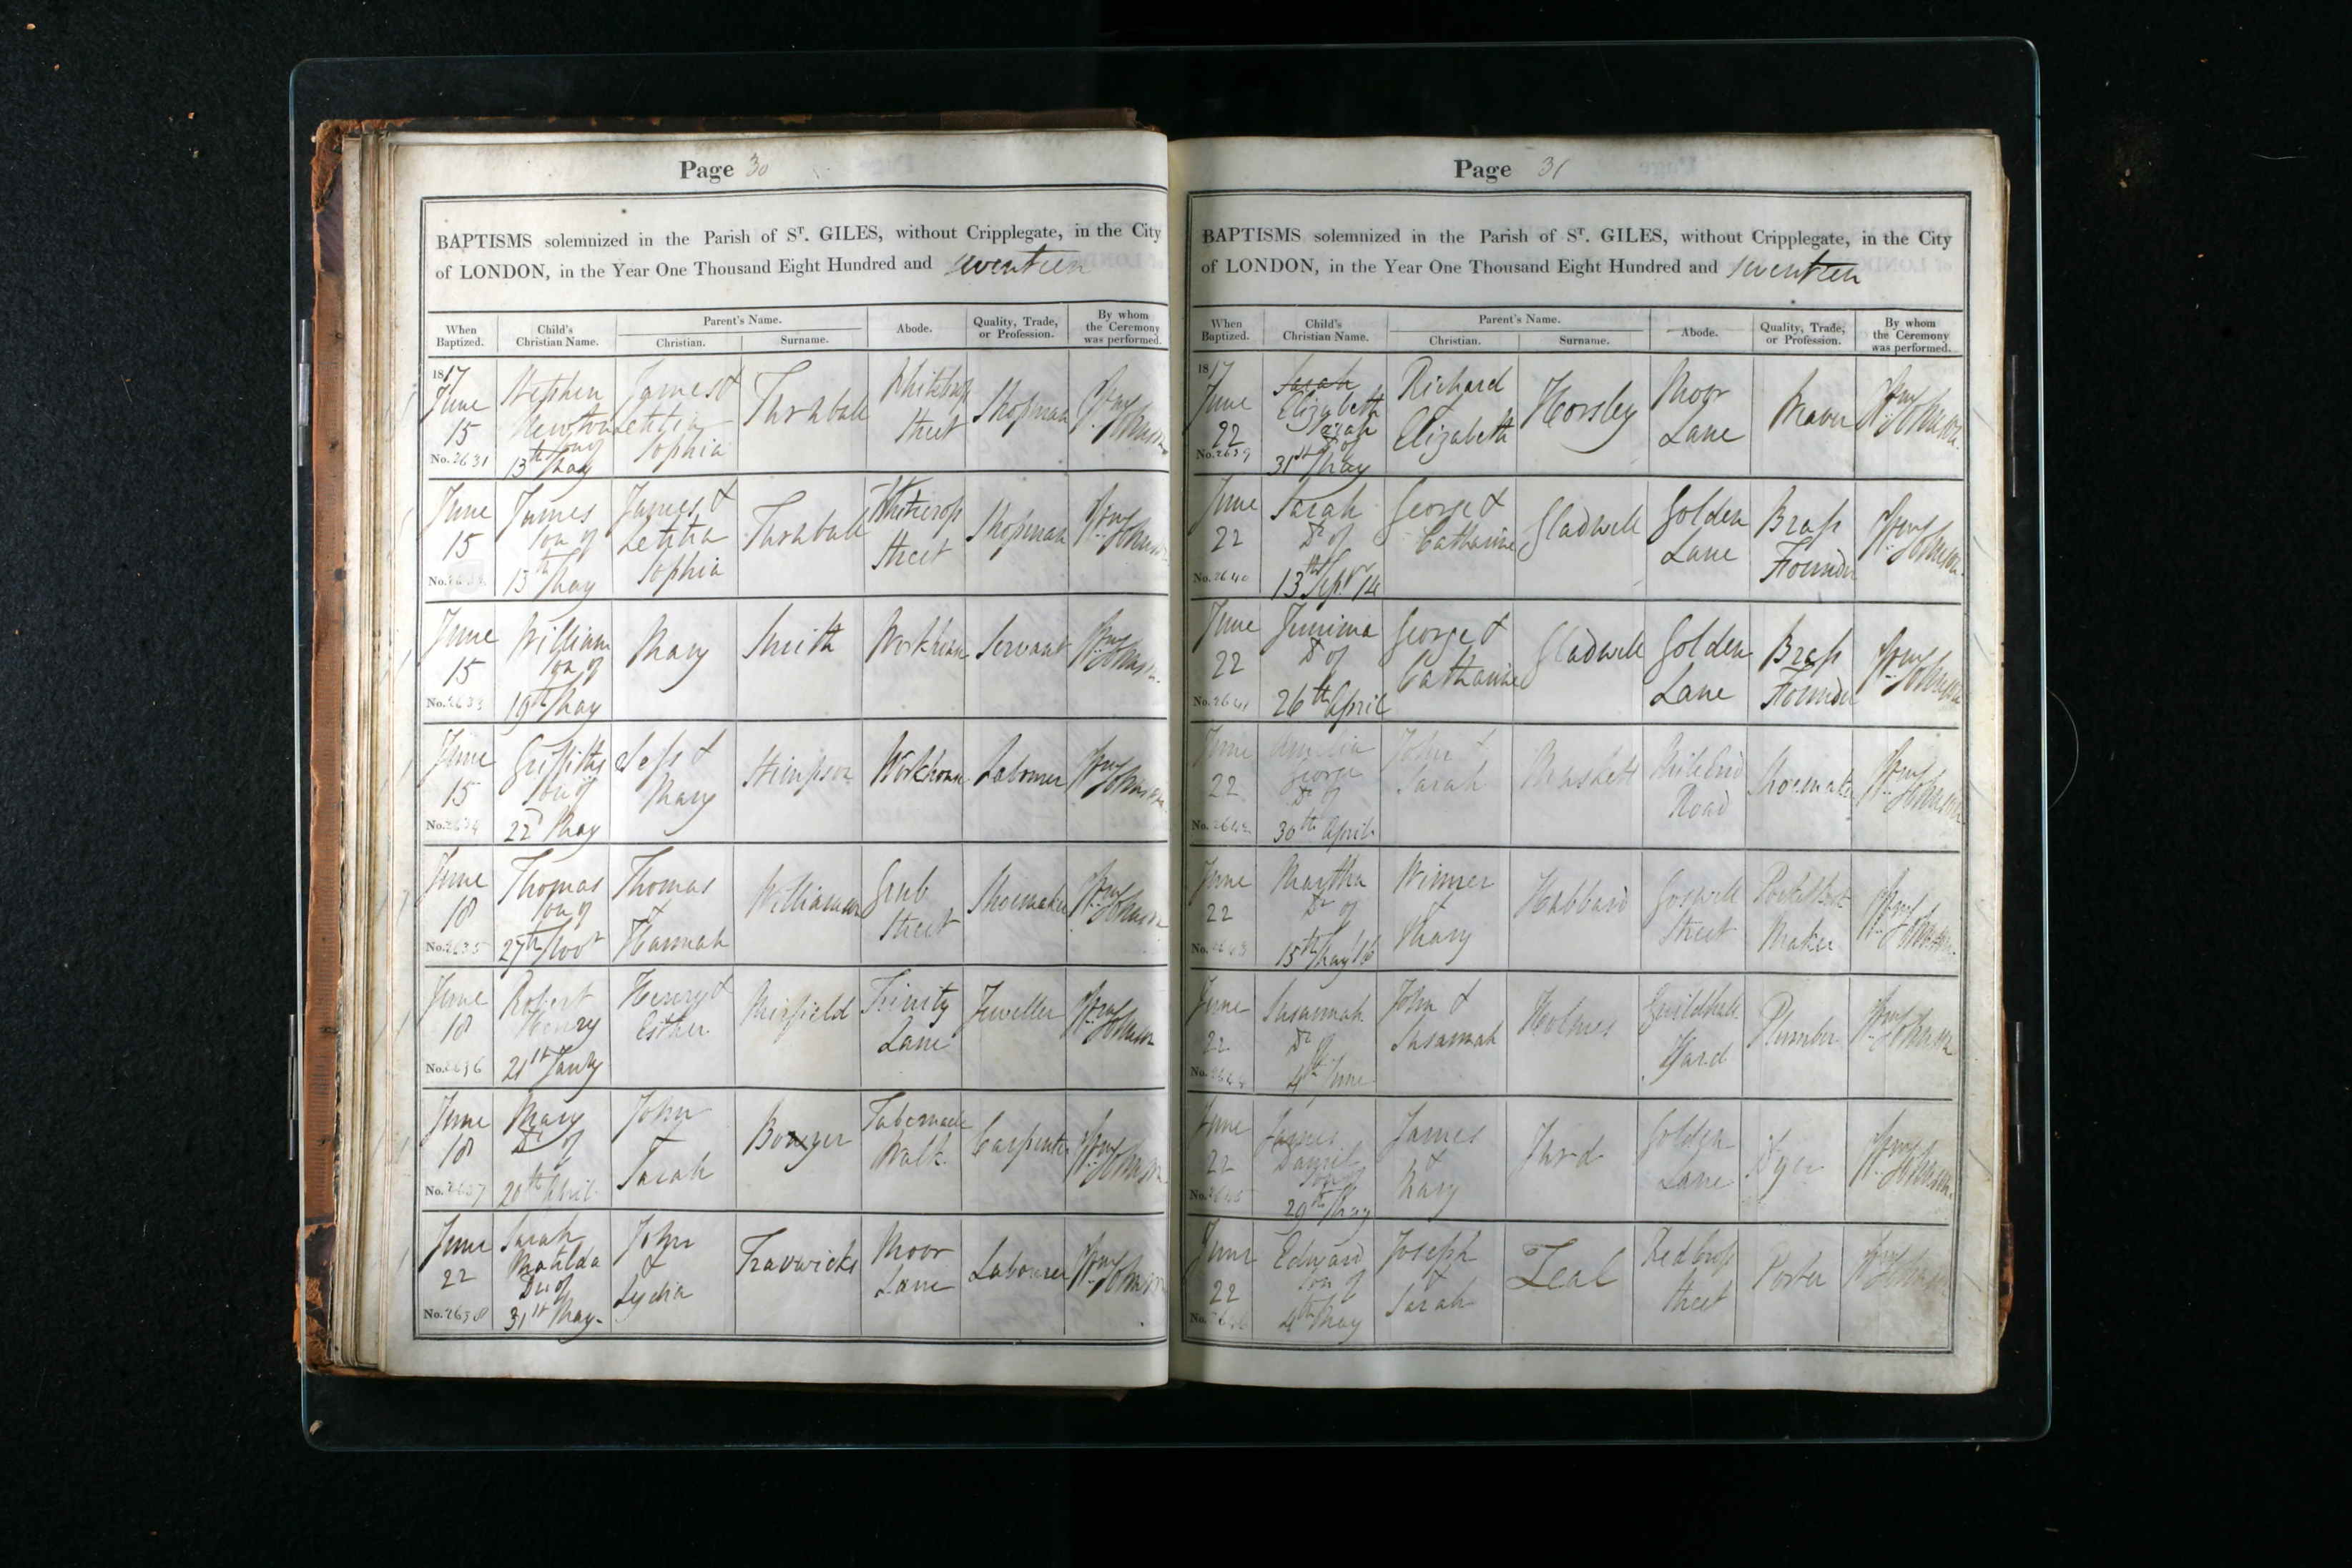 Page 30
BAPTISMS solemnized in the Parish of St. GILES, without Cripplegate, in the City
of LONDON, in the Year One Thousand Eight Hundred and seventeen
When Baptized. Child's Christian Name. Parent's Name. Christian. Surname. Abode. Quality, Trade, or Profession. By whom the Ceremony was performed.
1817
June 15 No. 2631 Stephen Newton son of 13th May James & Letitia Sophia Whitecross Street Shopman Wm Johnson
June 15 No. James son of 13th May James & Letitia Sophia Whitecross Street Shopman Wm Johnson
June 15 No. 2633 William son of 19th May Mary Smith Workhouse Servant Wm Johnson
June 15 No. 2634 Griffiths son of 22d May Jesse & Mary Stimpson Workhouse Labourer Wm Johnson
June 18 No. 2635 Thomas son of 27th Novr Thomas & Hannah Williamson Grub Street Shoemaker Wm Johnson
June 18 No. 2636 Robert Henry 21st Jany Henry & Esther Trinity Lane Jeweller Wm Johnson
June 18 No. 2637 Mary Dr of 20th April John & Sarah Tabernacle Walk Carpenter Wm Johnson
June 22 No. 2638 Sarah Matilda Dr of 31st May John & Lydia Moor Lane Labourer Wm Johnson
Page 31
BAPTISMS solemnized in the Parish of St. GILES, without Cripplegate, in the City
of LONDON, in the Year One Thousand Eight Hundred and seventeen
When Baptized. Child's Christian Name. Parent's Name. Christian. Surname. Abode. Quality, Trade, or Profession. By whom the Ceremony was performed.
1817
June 22 No. 2639 Sarah Elizabeth Sarah Dr of 31st May Richard Elizabeth Horsley Moor Lane Weaver Wm Johnson
June 22 No. 2640 Sarah Dr of 13th Sepr 14 George & Catharine Gladwell Golden Lane Brass Founder Wm Johnson
June 22 No. 2641 Jemima Dr of 26th April George & Catharine Gladwell Golden Lane Brass Founder Wm Johnson
June 22 No. 2642 Amelia George Dr of 30th April John & Sarah Mile End Road Shoemaker Wm Johnson
June 22 No. 2643 Martha Dr of 15th May 16 & Mary Hubbard Goswell Street Pocket Book Maker Wm Johnson
June 22 No. 2644 Susannah Dr of 4th June John & Susannah Holmes Guildhall Yard Plumber Wm Johnson
June 22 No. 2645 James Daniel son of 29th May James & Mary Golden Lane Dyer Wm Johnson
June 22 No. 2646 Edward son of 4th May Joseph & Sarah Teal Redcross Street Porter Wm Johnson